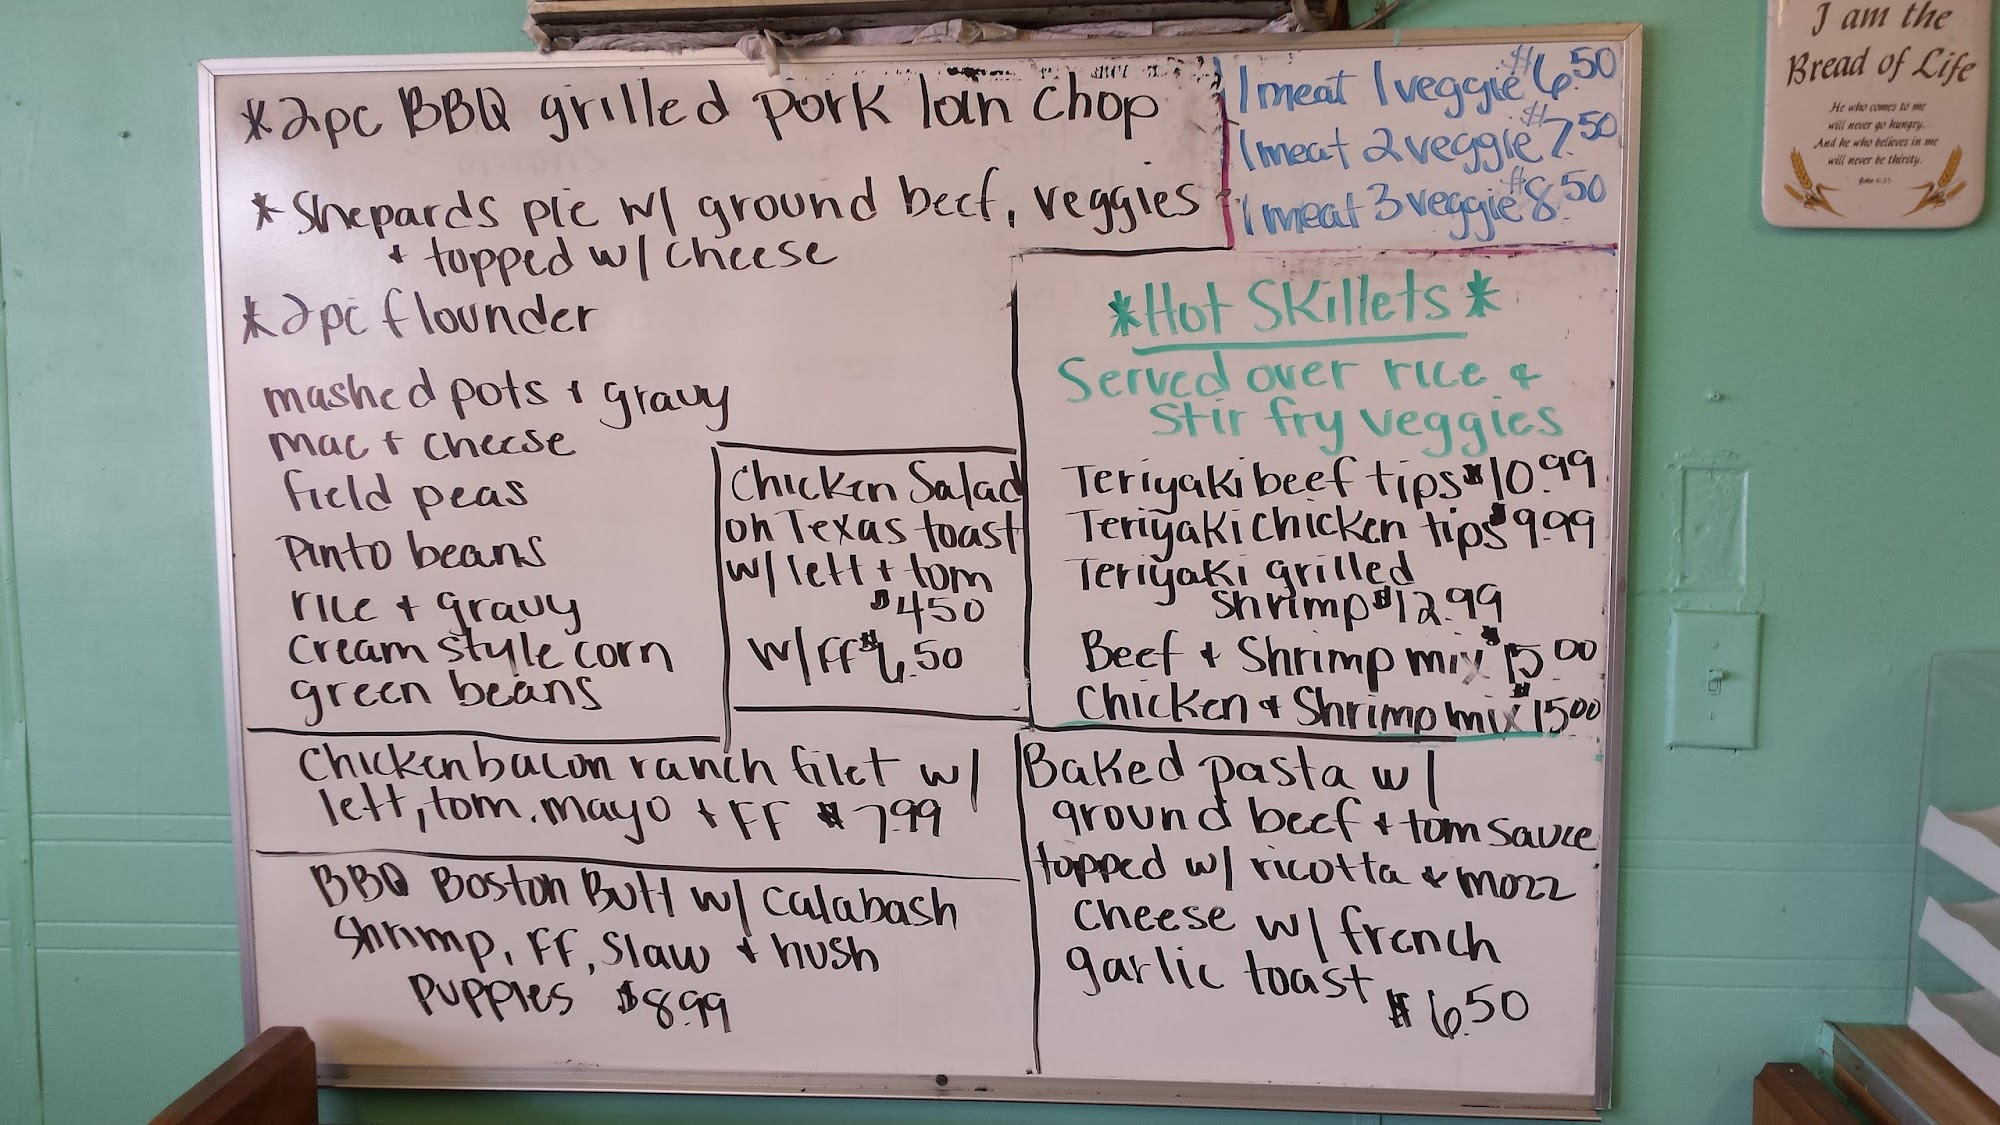 *2pc BBQ grilled pork loin chop
*Shepards pie w/ ground beef, veggies
+ topped w/ cheese
*2pc flounder
mashed pots + gravy
mac + cheese
field peas
Pinto beans
rice + gravy
cream style corn
green beans
1 meat 1 veggie $6.50
1 meat 2 veggie $7.50
1 meat 3 veggie $8.50
*Hot Skillets*
Served over rice &
stir fry veggies
Teriyaki beef tips $10.99
Teriyaki chicken tips $9.99
Teriyaki grilled
shrimp $12.99
Beef + Shrimp mix $15.00
Chicken + Shrimp mix $15.00
Chicken Salad
on Texas toast
w/ lett + tom
$4.50
w/ FF $6.50
Chicken bacon ranch filet w/
lett, tom, mayo + FF $7.99
BBQ Boston Butt w/ Calabash
Shrimp, FF, Slaw + hush
puppies $8.99
Baked pasta w/
ground beef + tom sauce
topped w/ ricotta & mozz
cheese w/ french
garlic toast
$6.50
I am the
Bread of Life
He who comes to me
will never go hungry.
And he who believes in me
will never be thirsty.
John 6:35